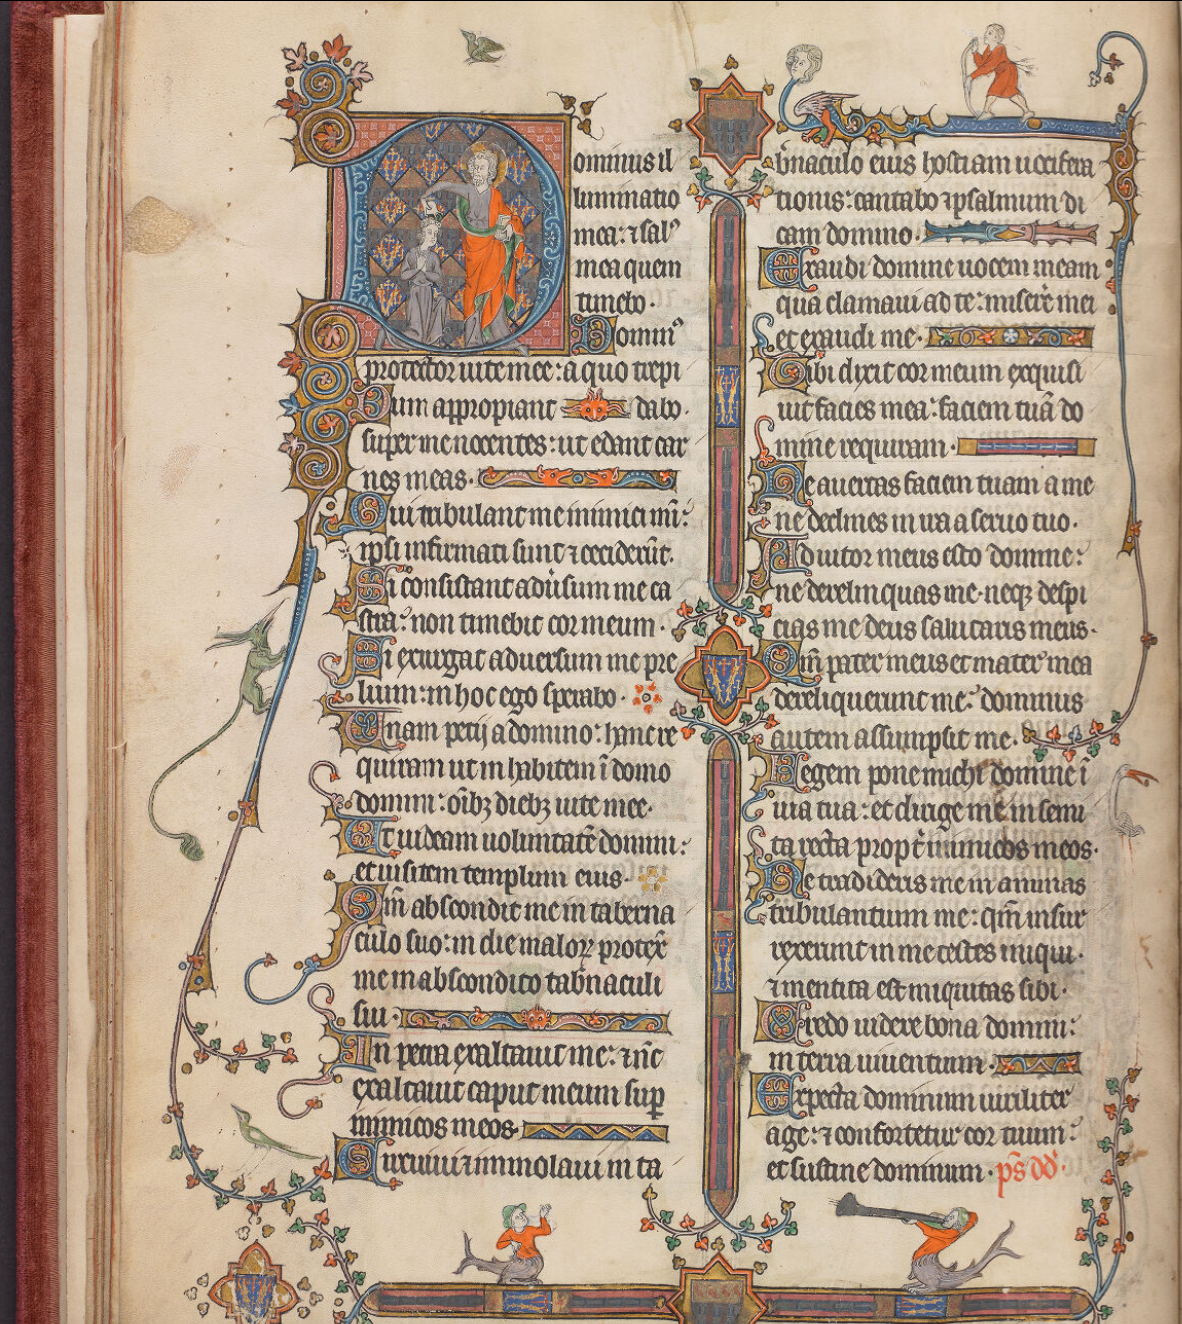 Dominus il
luminatio
mea: ⁊ salꝰ
mea quem
timebo.
Dominꝰ
protector uite mee: a quo trepi
Dum appropiant dabo.
super me nocentes: ut edant car
nes meas.
Qui tribulant me inimici mi͛:
ipsi infirmati sunt ⁊ ceciderūt.
Si consistant aduͥsum me ca
stra: non timebit cor meum.
Si exurgat aduersum me pre
lium: in hoc ego sperabo.
Unam petij a domino: hanc re
quiram ut inhabitem ī domo
domini: oībꝫ diebꝫ uite mee.
Ut uideam uoluntatē domini:
et uisitem templum eius.
Qm̄ abscondit me in taberna
culo suo: in die maloꝝ protex̄
me in abscondito tab̄naculi
sui.
In petra exaltauit me: ⁊ nc̄
exaltauit caput meum suꝑ
inimicos meos.
Circuiui ⁊ immolaui in ta
b̄naculo eius hostiam uocifera
tionis: cantabo ⁊ psalmum di
cam domino.
Exaudi domine uocem meam
qua clamaui ad te: misere͛ mei
et exaudi me.
Tibi dixit cor meum exquisi
uit facies mea: faciem tuā do
mine requiram.
Ne auertas faciem tuam a me
ne declines in ira a seruo tuo.
Adiutor meus esto domine:
ne derelinquas me. neqꝫ despi
cias me deus salutaris meus.
Qm̄ pater meus et mater mea
dereliquerunt me: dominus
autem assumpsit me.
Legem pone michi domine ī
uia tua: et dirige me in semi
ta recta propt͛ inimicos meos.
Ne tradideris me in animas
tribulantium me: qm̄ insur
rexerunt in me testes iniqui.
⁊ mentita est iniquitas sibi.
Credo uidere bona domini:
in terra uiuentium.
Expecta dominum uiriliter
age: ⁊ confortetur cor tuum:
et sustine dominum. ps̄ dd̄.